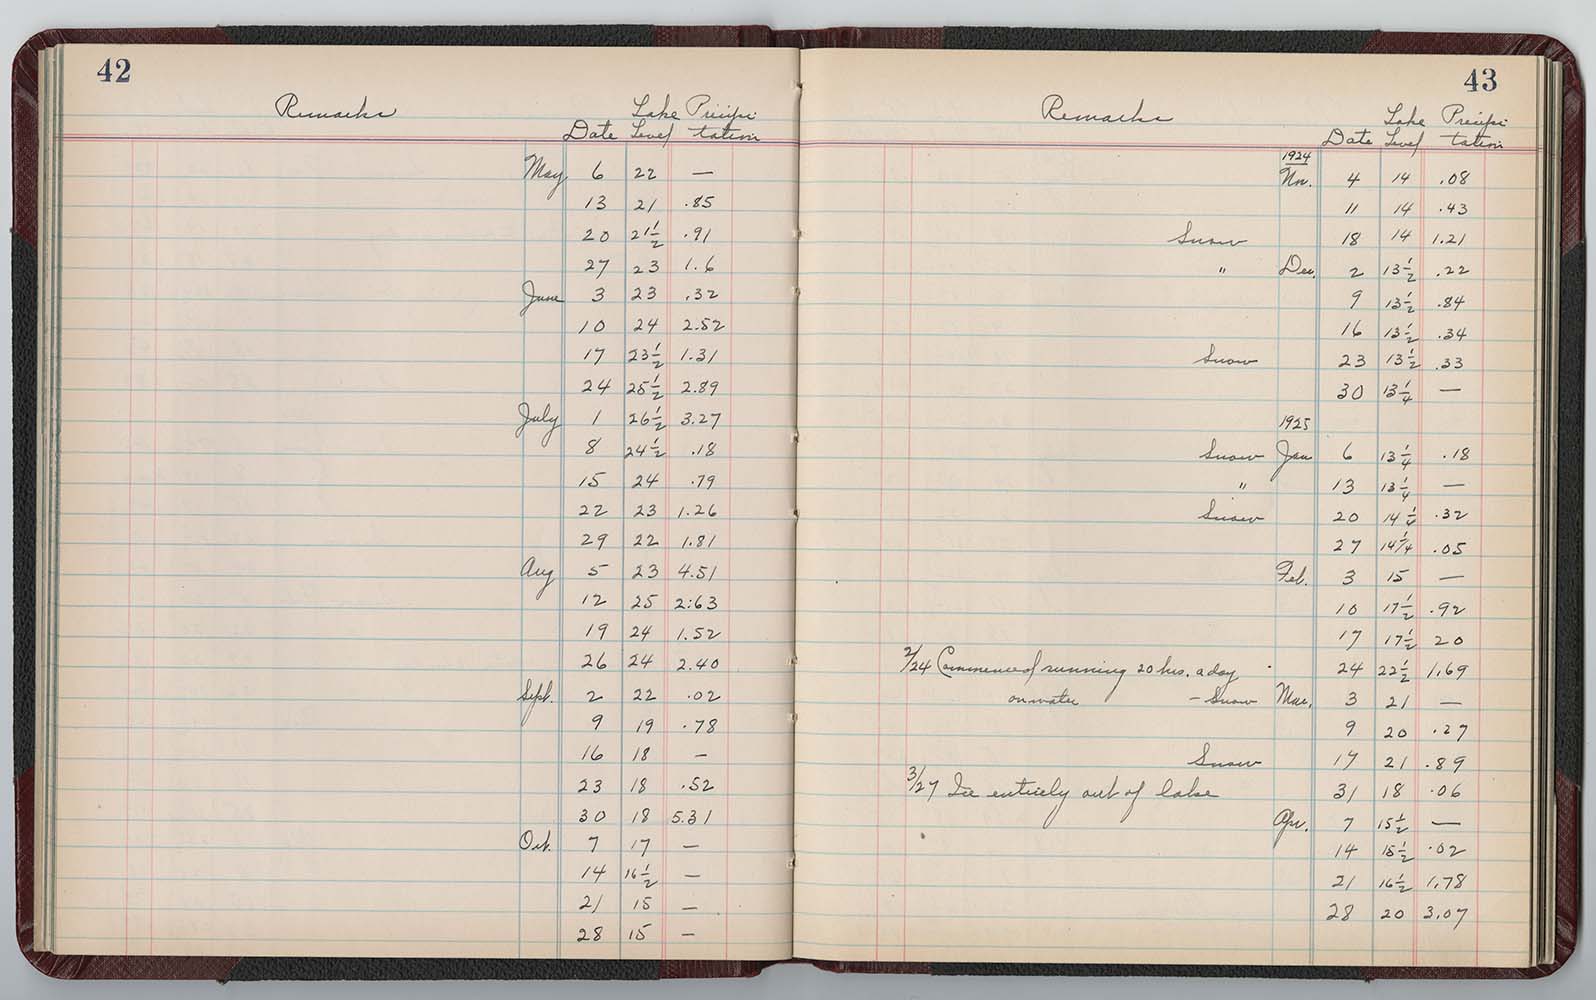 42
Remarks Date Lake Level Precipi-tation
May 6 22 —
13 21 .85
20 21½ .91
27 23 1.6
June 3 23 .32
10 24 2.52
17 23½ 1.31
24 25½ 2.89
July 1 26½ 3.27
8 24½ .18
15 24 .79
22 23 1.26
29 22 1.81
Aug 5 23 4.51
12 25 2:63
19 24 1.52
26 24 2.40
Sept. 2 22 .02
9 19 .78
16 18 —
23 18 .52
30 18 5.31
Oct. 7 17 —
14 16½ —
21 15 —
28 15 —
43
Remarks Date Lake Level Precipi-tation
1924
Nov. 4 14 .08
11 14 .43
Snow 18 14 1.21
" Dec. 2 13½ .22
9 13½ .84
16 13½ .34
Snow 23 13½ .33
30 13¼ —
1925
Snow Jan 6 13¼ .18
" 13 13¼ —
Snow 20 14¼ .32
27 14¼ .05
Feb. 3 15 —
10 17½ .92
17 17½ 20
2/24 Commenced running 20 hrs. a day 24 22½ 1.69
on water – Snow Mar. 3 21 —
9 20 .27
Snow 17 21 .89
3/27 Ice entirely out of lake 31 18 .06
Apr. 7 15½ —
14 15½ .02
21 16½ 1.78
28 20 3.07